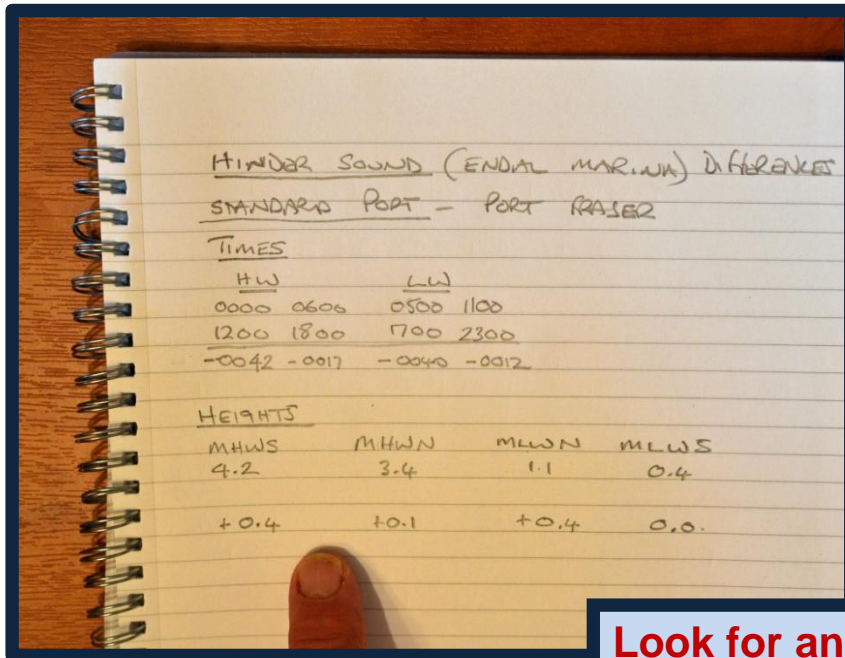 HINDER SOUND (ENDAL MARINA) DIFFERENCES
STANDARD PORT - PORT FRASER
TIMES
HW LW
0000 0600 0500 1100
1200 1800 1700 2300
-0042 -0017 -0040 -0012
HEIGHTS
MHWS MHWN MLWN MLWS
4.2 3.4 1.1 0.4
+0.4 +0.1 +0.4 0.0.
Look for an